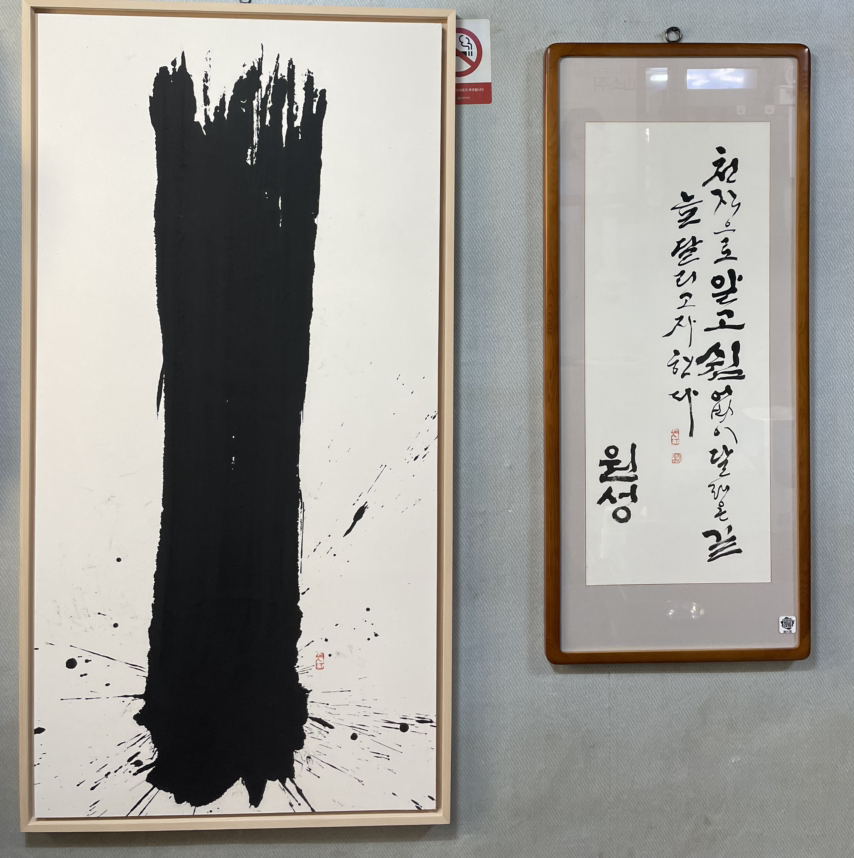 천직으로 알고 쉼없이 달려온 길
늘 달리고자 한다
원성